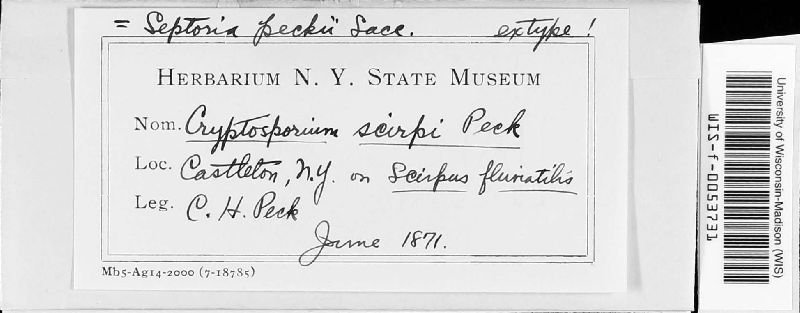 = Septoria peckii Sacc. extype!
HERBARIUM N. Y. STATE MUSEUM
Nom. Cryptosporium scirpi Peck
Loc. Castleton, N.Y. on Scirpus fluviatilis
Leg. C. H. Peck
June 1871.
Mb5-Ag14-2000 (7-18785)
University of Wisconsin-Madison (WIS)
WIS-f-0053731